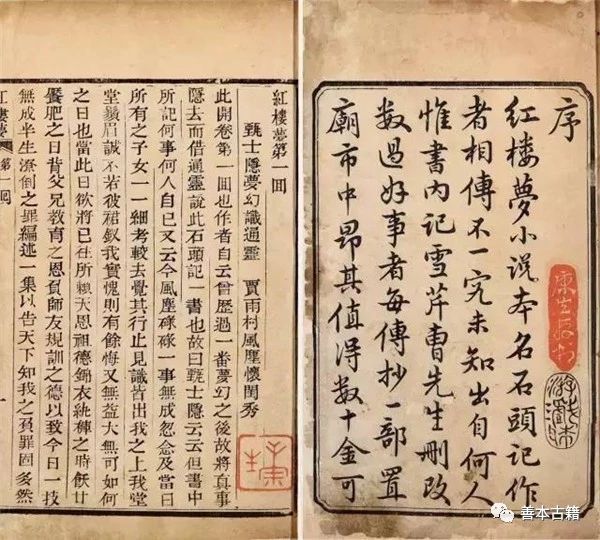 序
红楼夢小说本名石頭記作
者相傳不一究未知出自何人
惟書内記雪芹曹先生删改
数過好事者每傳抄一部置
廟市中昂其值得数十金可
紅樓夢第一回
甄士隱夢幻識通靈 賈雨村風塵懷閨秀
此開卷第一回也作者自云曾歷過一番夢幻之後故將真事
隱去而借通靈說此石頭記一書也故曰甄士隱云云但書中
所記何事何人自己又云今風塵碌碌一事無成忽念及當日
所有之子女一一細考較去覺其行止見識皆出我之上我堂
堂鬚眉誠不若彼裙釵我實愧則有餘悔又無益大無可如何
之日也當此日欲將已往所賴天恩祖德錦衣紈褲之時飫甘
饜肥之日背父兄教育之恩負師友規訓之德以致今日一技
無成半生潦倒之罪編述一集以告天下知我之負罪固多然
紅樓夢 第一回 一
善本古籍